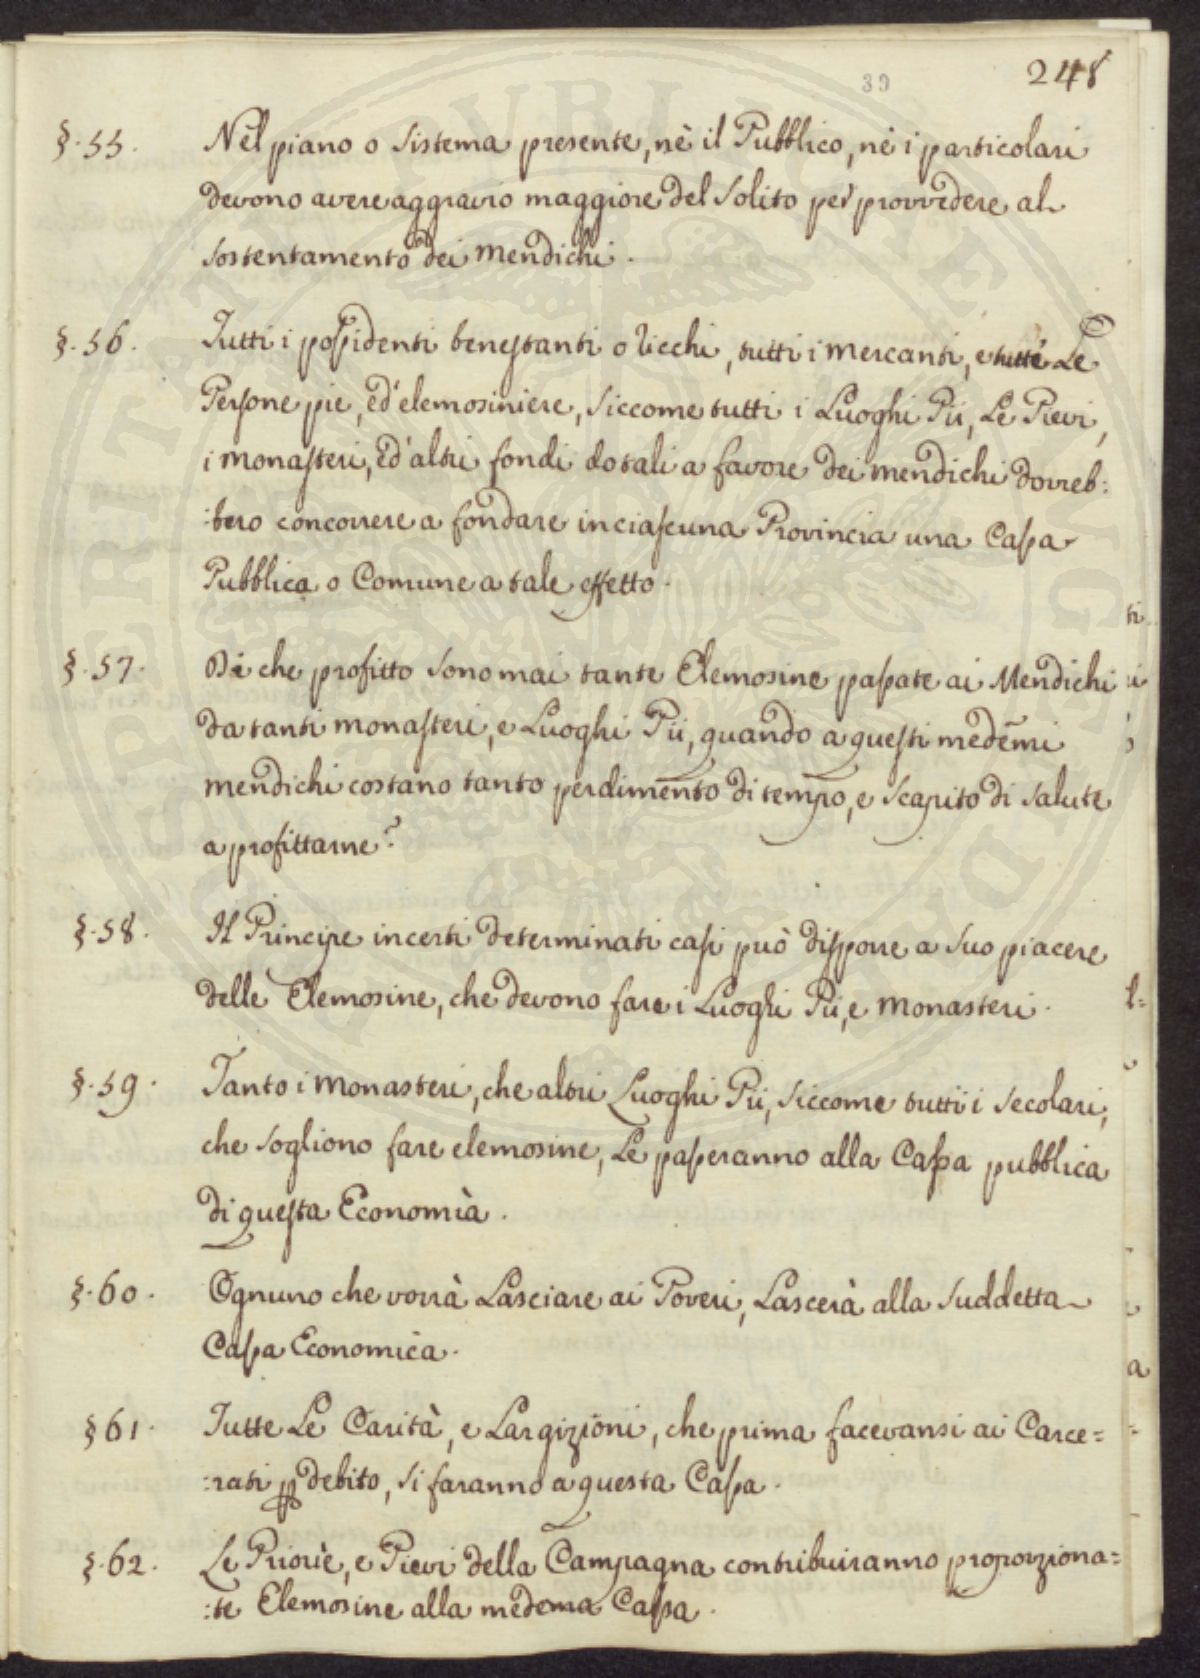 248
39
§. 55. Nel piano o sistema presente, nè il Pubblico, nè i particolari
devono avere aggravio maggiore del solito per provvedere al
sostentamento dei mendichi.
§. 56. Tutti i possidenti benestanti o ricchi, tutti i mercanti, e tutte Le
Persone pie, ed elemosiniere, siccome tutti i Luoghi Pii, Le Pievi,
i monasteri, ed altri fondi dotali a favore dei mendichi dovreb:
:bero concorrere a fondare in ciascuna Provincia una Cassa
Pubblica o Comune a tale effetto.
§. 57. Di che profitto sono mai tante Elemosine passate ai Mendichi
da tanti monasteri, e Luoghi Pii, quando a questi medemi
mendichi costano tanto perdimento di tempo, e scapito di salute
a profittarne?
§. 58. Il Principe in certi determinati casi può disporre a suo piacere
delle Elemosine, che devono fare i Luoghi Pii, e monasteri.
§. 59. Tanto i monasteri, che altri Luoghi Pii, siccome tutti i secolari,
che sogliono fare elemosine, Le passeranno alla Cassa pubblica
di questa Economìa.
§. 60. Ognuno che vorrà Lasciare ai Poveri, Lascerà alla suddetta
Cassa Economica.
§ 61. Tutte Le Carità, e Largizioni, che prima facevansi ai Carce=
:rati p debito, si faranno a questa Cassa.
§. 62. Le Priorìe, e Pievi della Campagna contribuiranno proporziona=
:te Elemosine alla medema Cassa.
PROSPERITATI PUBLICAE AUGENDAE